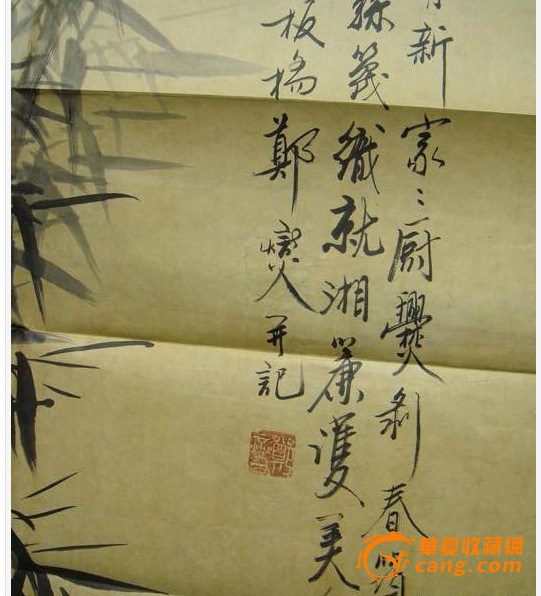 月新家〻廚爨剝春筠
絲篾織就湘簾護美
板橋鄭燮并記
華夏收藏網
cang.com